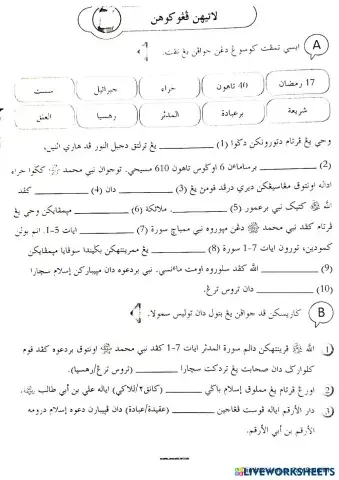 لاتيهن ڤڠوكوهن
A
ايسي تمڤت كوسوڠ دڠن جواڤن يڠ تڤت.
17 رمضان
40 تاهون
حراء
جبرائيل
ست
شريعة
برعبادة
المدثر
رهسيا
العلق
وحي يڠ ڤرتام دتورونكن دݢوا (1) ________ يڠ ترلتق دجبل النور ڤد هاري اثنين،
(2) ________ برسامأن 6 اوݢوس تاهون 610 مسيحي. توجوان نبي محمد ﷺ كݢوا حراء
اداله اونتوق مڠاسيڠكن ديري درڤد قوم يڠ (3) ________ دان (4) ________ كڤد
الله ﷻ كتيك نبي برعمور (5) ________. ملائكة (6) ________ مڽمڤايكن وحي يڠ
ڤرتام كڤد نبي محمد ﷺ دڠن مڽوروه نبي ممباچ سورة (7) ________ ايات 1-5. انم بولن
كمودين، تورون ايات 1-7 سورة (8) ________ يڠ ممرينتهكن بݢيندا سوڤايا مڽمڤايكن
(9) ________ الله كڤد سلوروه اومت مأنسي. نبي بردعوه دان مڽيباركن إسلام سچارا
(10) ________ دان تروس ترڠ.
B
ݢاريسكن ڤد جواڤن يڠ بتول دان توليس سمولا.
1 الله ﷻ ڤرينتهكن دالم سورة المدثر ايات 1-7 كڤد نبي محمد ﷺ اونتوق بردعوه كڤد قوم
كلوارݢ دان صحابت يڠ تردكت سچارا ________ (تروس ترڠ/رهسيا).
2 اورڠ ڤرتام يڠ مملوق إسلام باݢي ________ (كانق٢/للاكي) اياله علي بن أبي طالب
3 دار الأرقم اياله ڤوست ڤڠاجين ________ (عقيدة/عبادة) دان ڤڽيبارن دعوه إسلام درومه
الأرقم بن أبي الأرقم.
LIVEWORKSHEETS